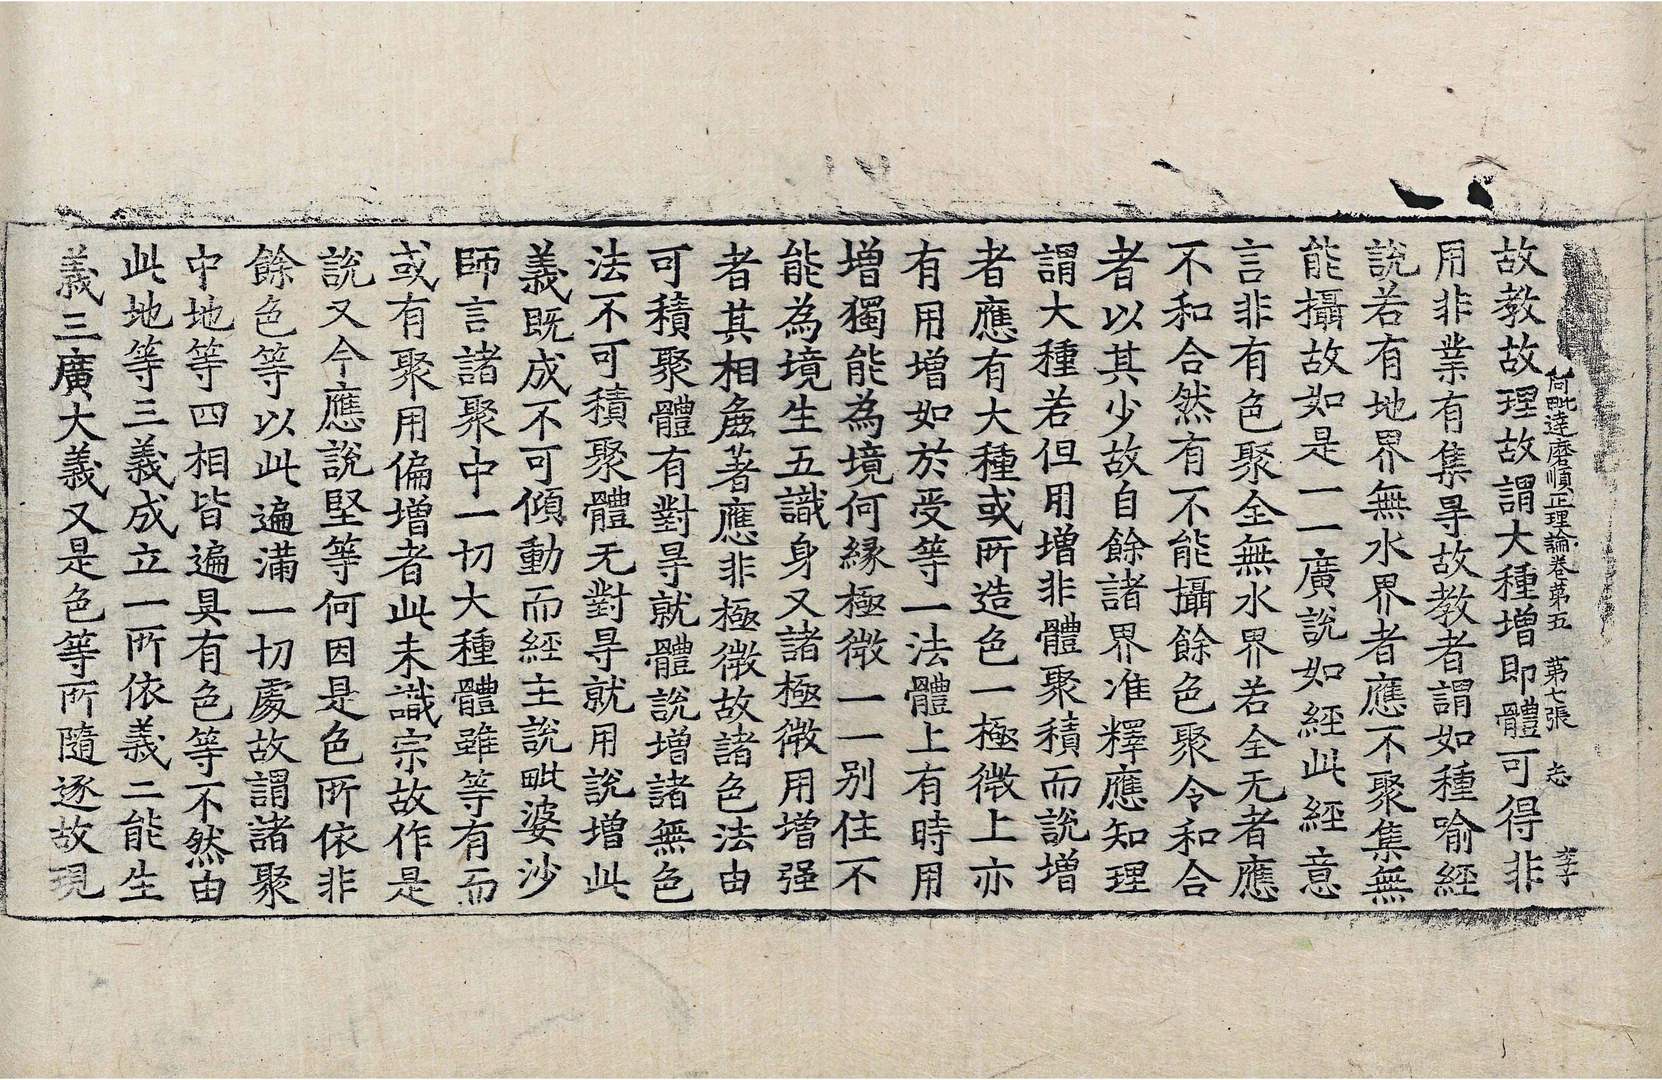 阿毗達磨順正理論卷第五　第七張　志　李子
故教故理故謂大種增即體可得非
用非業有集㝵故教者謂如種喻經
說若有地界無水界者應不聚集無
能攝故如是一一廣說如經此經意
言非有色聚全無水界若全无者應
不和合然有不能攝餘色聚令和合
者以其少故自餘諸界准釋應知理
謂大種若但用增非體聚積而說增
者應有大種或所造色一極微上亦
有用增如於受等一法體上有時用
增獨能為境何緣極微一一別住不
能為境生五識身又諸極微用增强
者其相麁著應非極微故諸色法由
可積聚體有對㝵就體說增諸無色
法不可積聚體无對㝵就用說增此
義既成不可傾動而經主說毗婆沙
師言諸聚中一切大種體雖等有而
或有聚用偏增者此未識宗故作是
說又今應說堅等何因是色所依非
餘色等以此遍滿一切處故謂諸聚
中地等四相皆遍具有色等不然由
此地等三義成立一所依義二能生
義三廣大義又是色等所隨逐故現